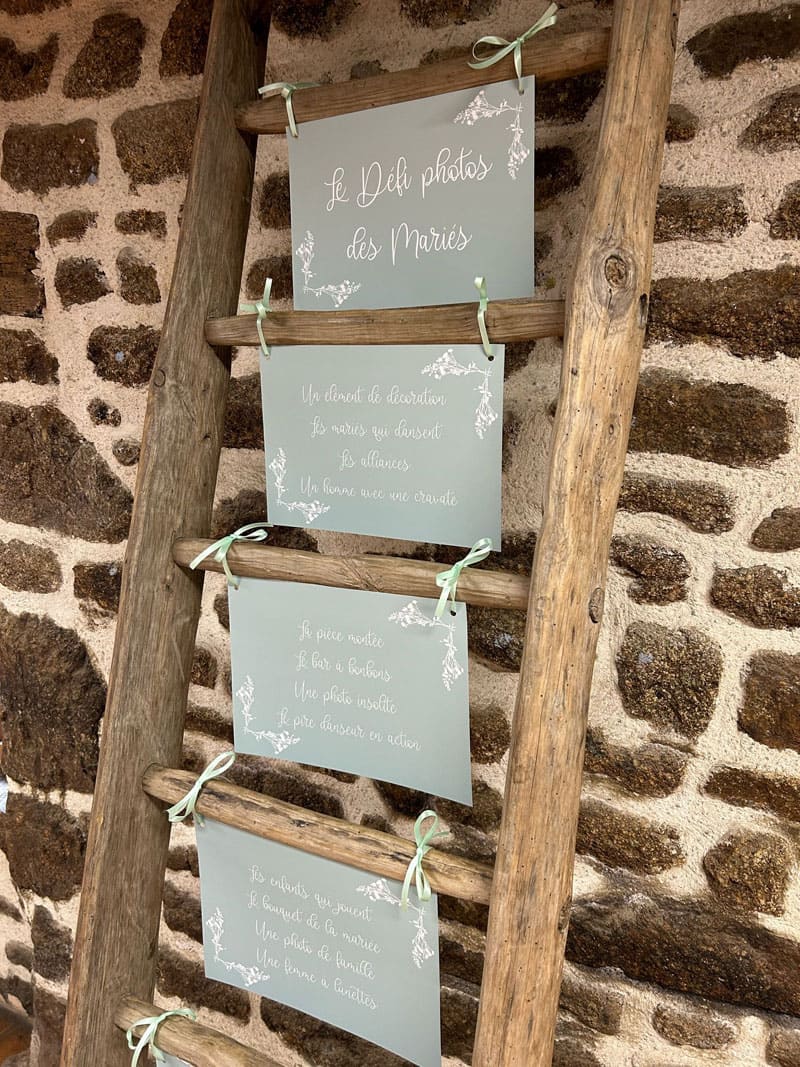 Le Défi photos
des Mariés
Un élément de décoration
Les mariés qui dansent
Les alliances
Un homme avec une cravate
La pièce montée
Le bar à bonbons
Une photo insolite
Le pire danseur en action
Les enfants qui jouent
Le bouquet de la mariée
Une photo de famille
Une femme à lunettes